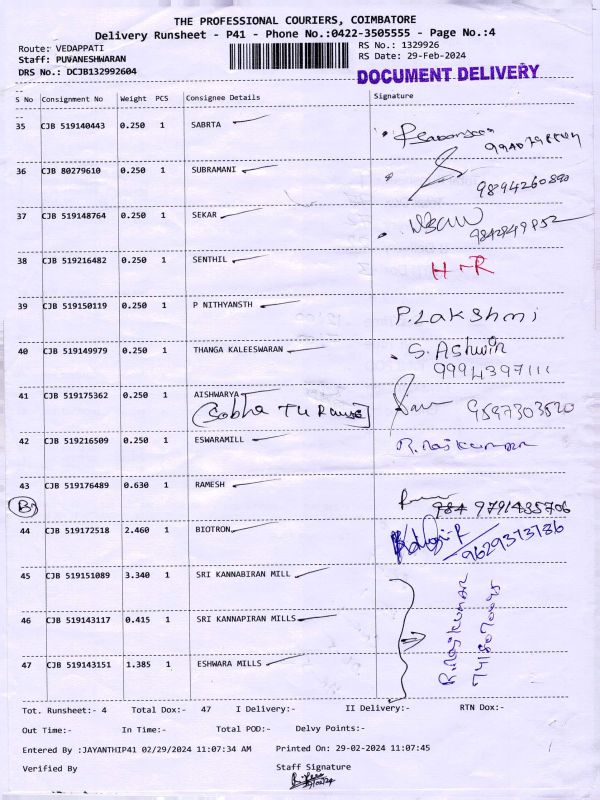 THE PROFESSIONAL COURIERS, COIMBATORE
Delivery Runsheet - P41 - Phone No.:0422-3505555 - Page No.:4
Route: VEDAPPATI
RS No.: 1329926
Staff: PUVANESHWARAN
RS Date: 29-Feb-2024
DRS No.: DCJB132992604
DOCUMENT DELIVERY
S No Consignment No Weight PCS Consignee Details Signature
35 CJB 519140443 0.250 1 SABRTA
36 CJB 80279610 0.250 1 SUBRAMANI
9894260890
37 CJB 519148764 0.250 1 SEKAR
9842849852
38 CJB 519216482 0.250 1 SENTHIL
39 CJB 519150119 0.250 1 P NITHYANSTH P.Lakshmi
40 CJB 519149979 0.250 1 THANGA KALEESWARAN S. Ashwin
9994397111
41 CJB 519175362 0.250 1 AISHWARYA
9597303520
42 CJB 519216509 0.250 1 ESWARAMILL R. Rajkumar
43 CJB 519176489 0.630 1 RAMESH
984 9791435706
44 CJB 519172518 2.460 1 BIOTRON
9629313186
45 CJB 519151089 3.340 1 SRI KANNABIRAN MILL
46 CJB 519143117 0.415 1 SRI KANNAPIRAN MILLS
47 CJB 519143151 1.385 1 ESHWARA MILLS
R. Rajkumar
Tot. Runsheet:- 4 Total Dox:- 47 I Delivery:- II Delivery:- RTN Dox:-
Out Time:- In Time:- Total POD:- Delvy Points:-
Entered By :JAYANTHIP41 02/29/2024 11:07:34 AM Printed On: 29-02-2024 11:07:45
Verified By Staff Signature